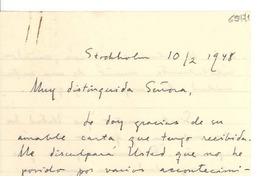 Stockholm 10/2 1948
Muy distinguida Señora,
Le doy gracias de su
amable carta que tengo recibida.
Me disculpará Usted que no he
podido por varios acontecimi-